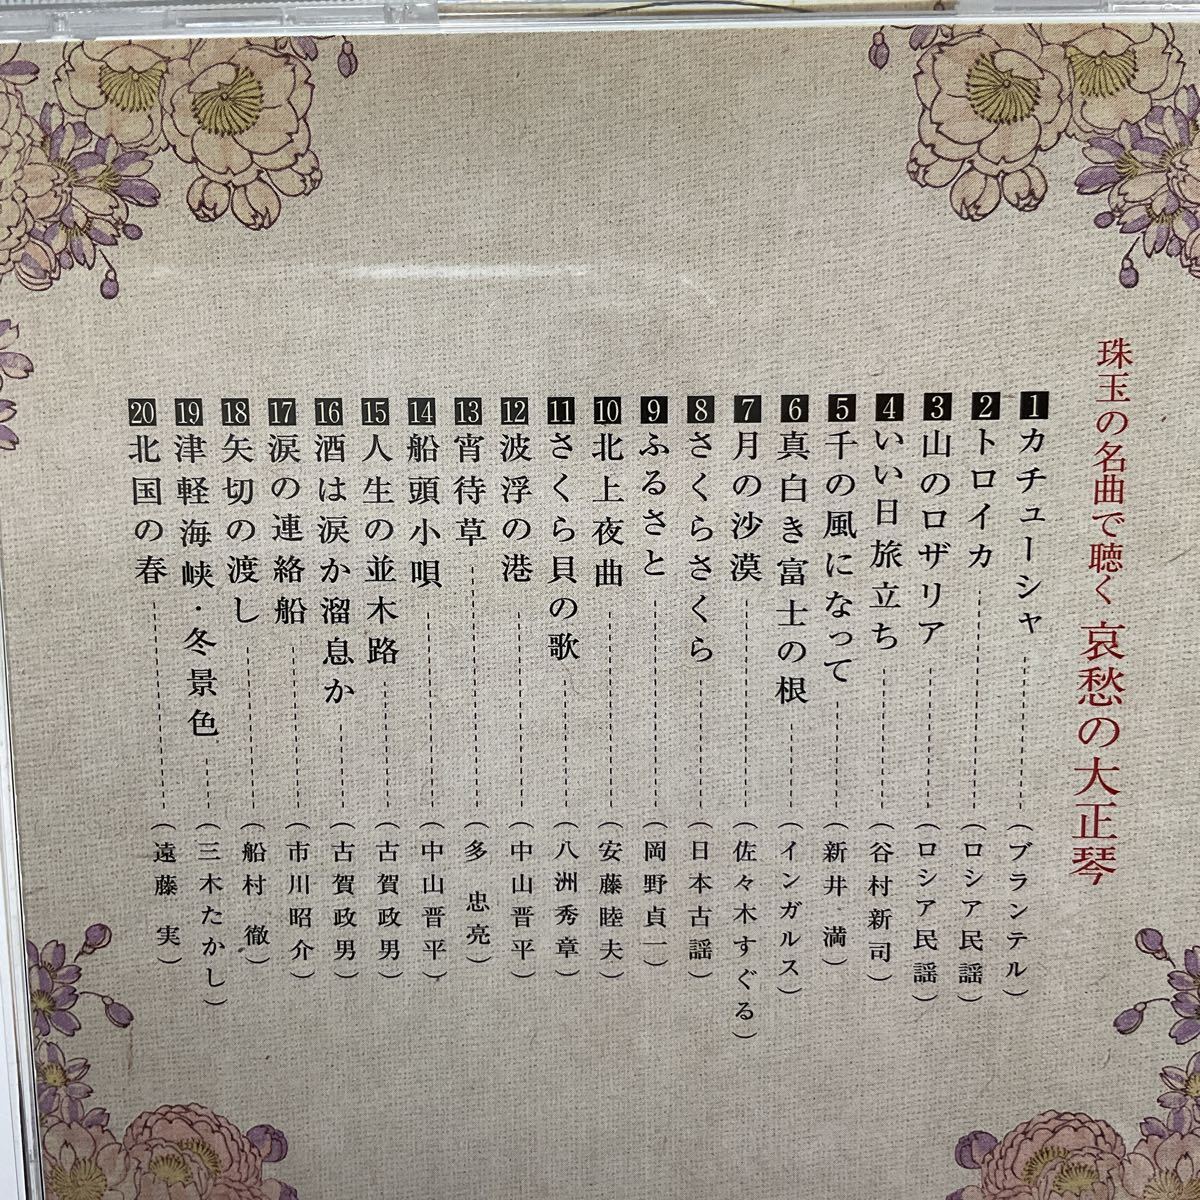 珠玉の名曲で聴く 哀愁の大正琴
1 カチューシャ (ブランテル)
2 トロイカ (ロシア民謡)
3 山のロザリア (ロシア民謡)
4 いい日旅立ち (谷村新司)
5 千の風になって (新井 満)
6 真白き富士の根 (インガルス)
7 月の沙漠 (佐々木すぐる)
8 さくらさくら (日本古謡)
9 ふるさと (岡野貞一)
10 北上夜曲 (安藤睦夫)
11 さくら貝の歌 (八洲秀章)
12 波浮の港 (中山晋平)
13 宵待草 (多 忠亮)
14 船頭小唄 (中山晋平)
15 人生の並木路 (古賀政男)
16 酒は涙か溜息か (古賀政男)
17 涙の連絡船 (市川昭介)
18 矢切の渡し (船村 徹)
19 津軽海峡・冬景色 (三木たかし)
20 北国の春 (遠藤 実)